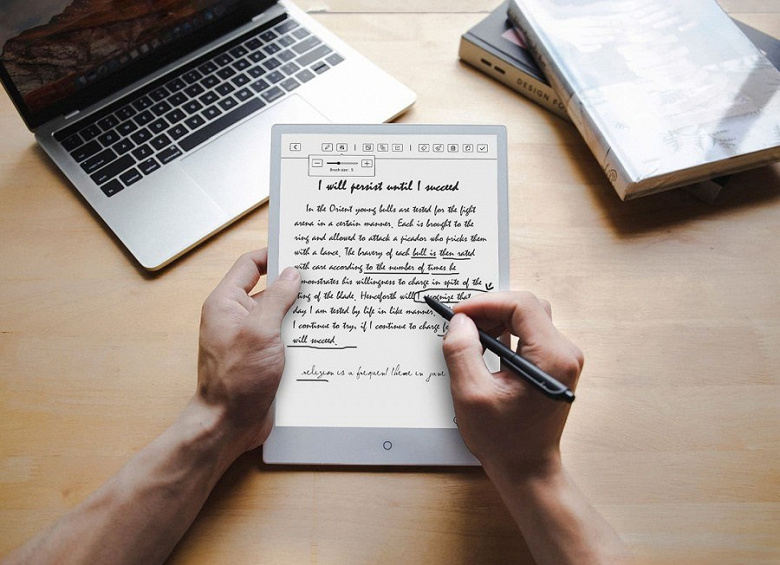 DESIGN FO
Brush size: 5
I will persist until I succeed
In the Orient young bulls are tested for the fight
arena in a certain manner. Each is brought to the
ring and allowed to attack a picador who pricks them
with a lance. The bravery of each bull is then rated
with care according to the number of times he
monstrates his willingness to charge in spite of the
ting of the blade. Henceforth will I recognize that
day I am tested by life in like manner.
I continue to try, if I continue to charge
will succeed.
religion is a frequent theme in